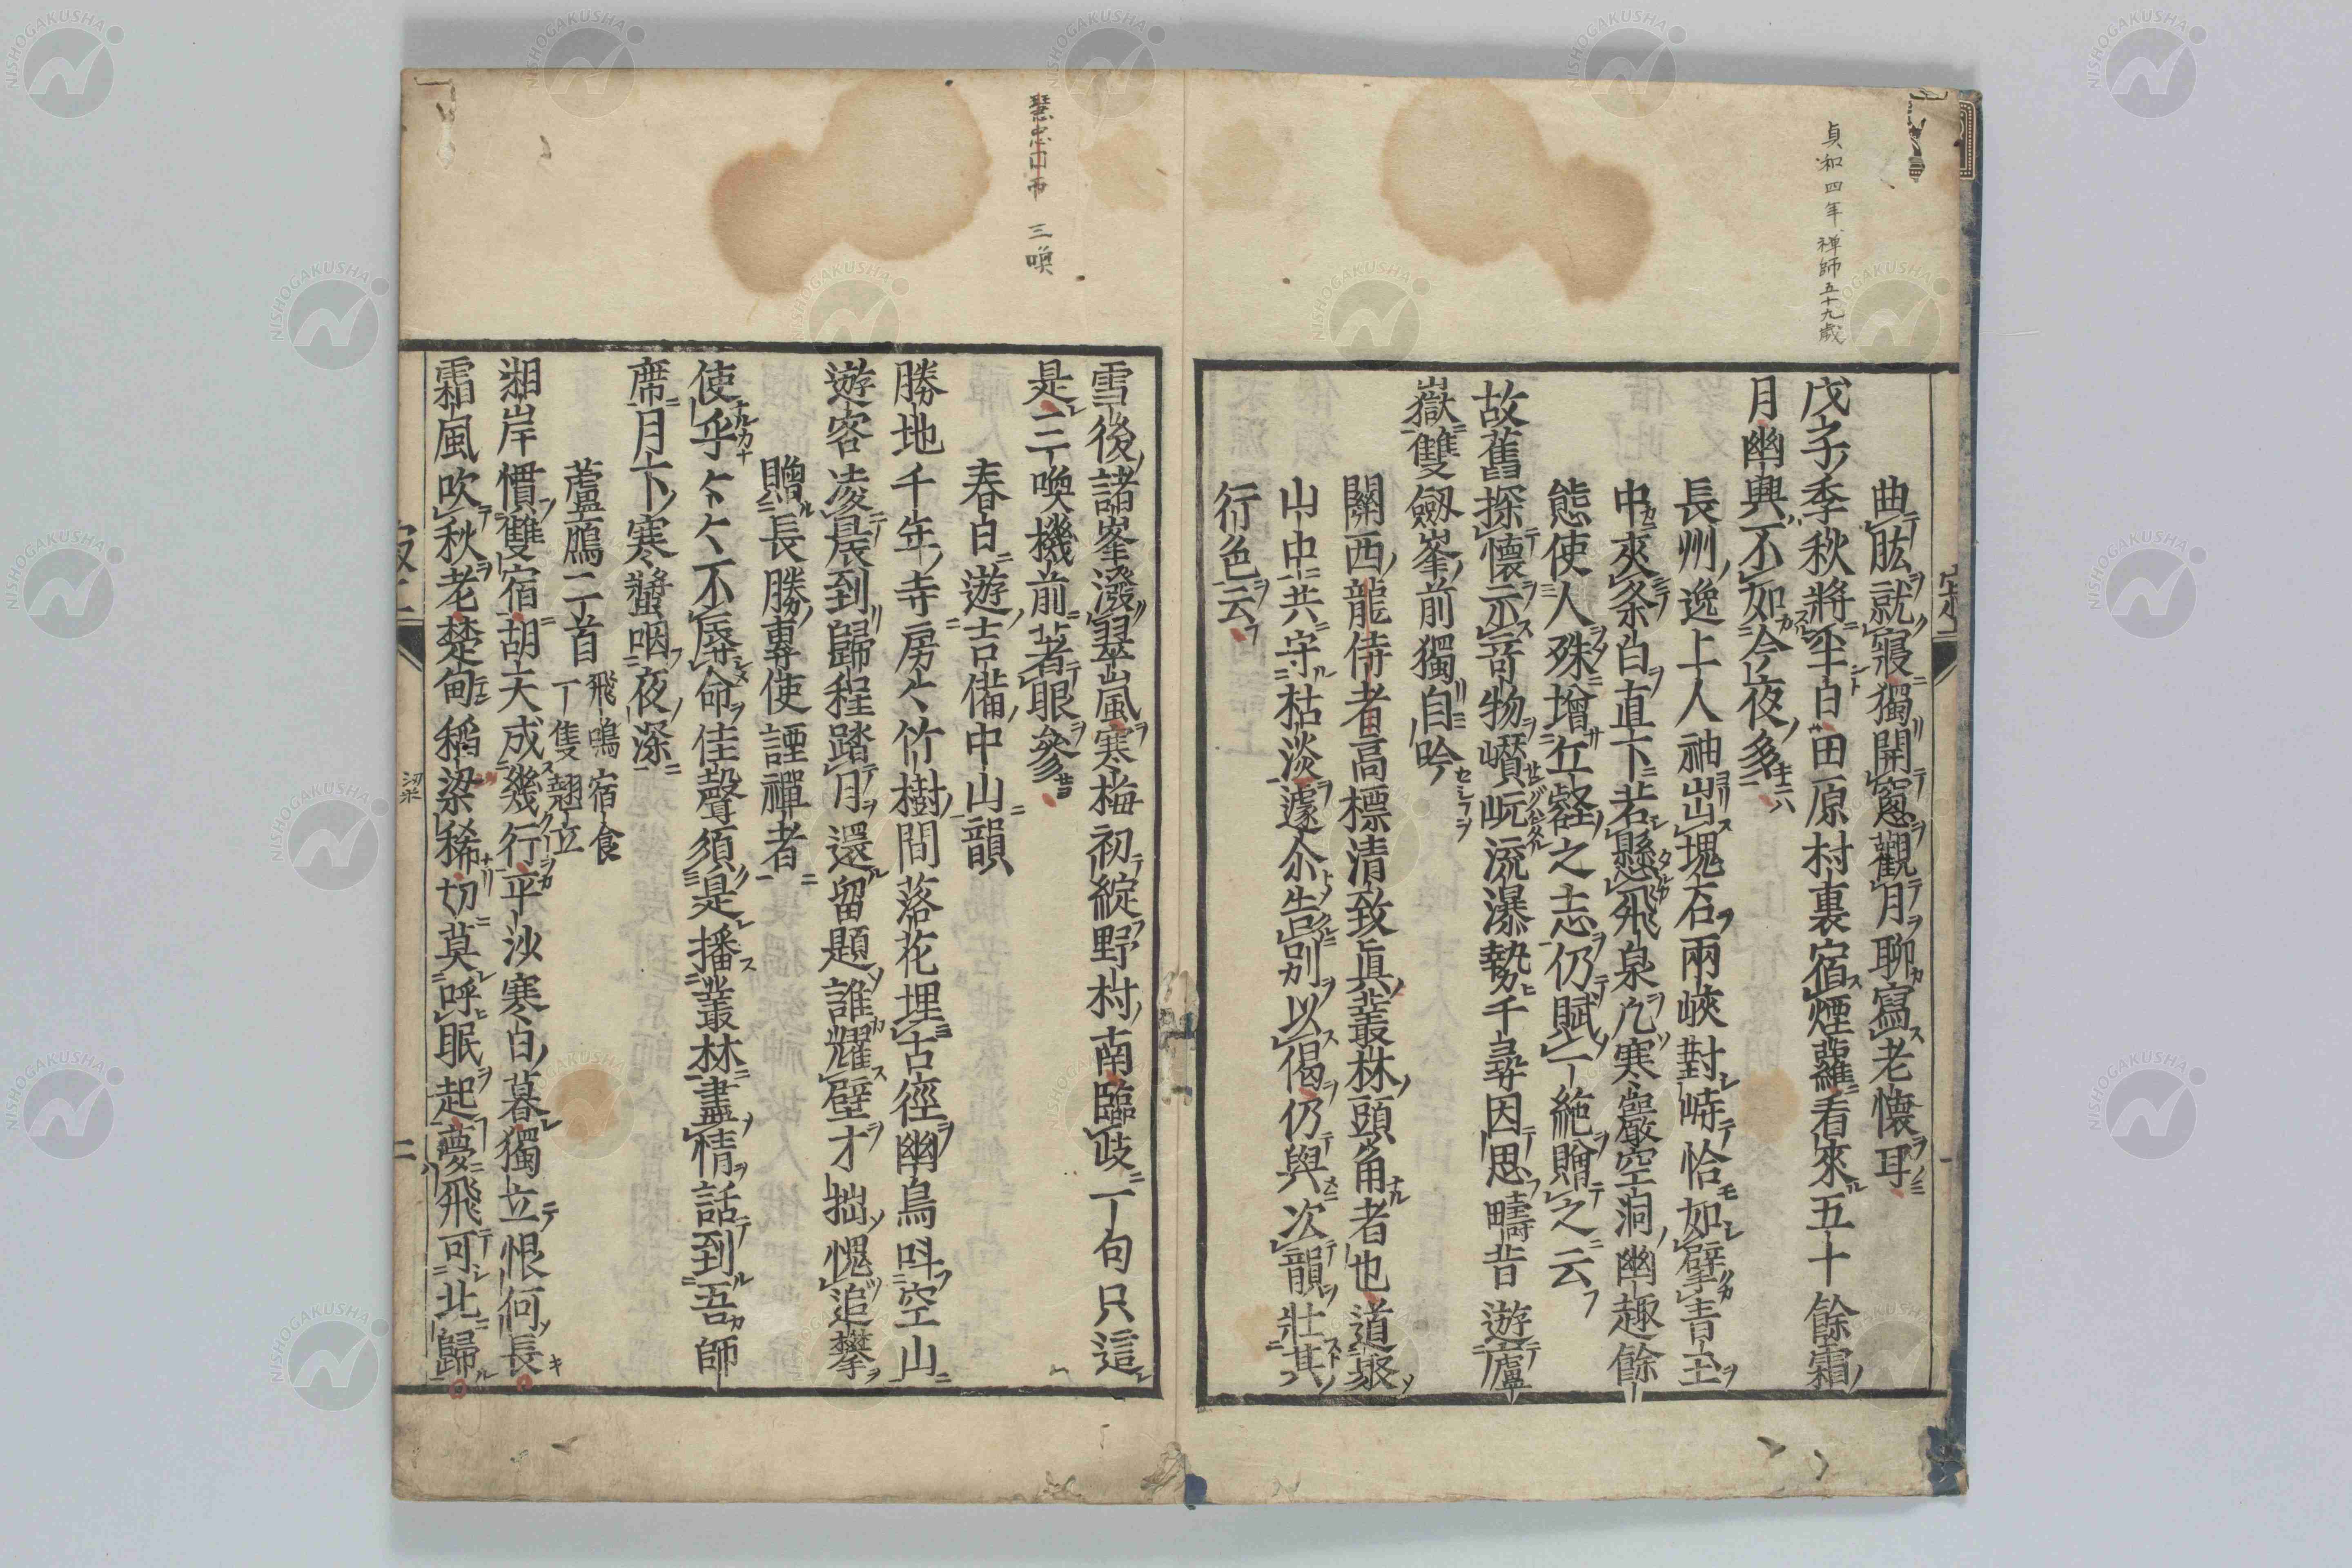 貞和四年禅師五十九歳
曲肱就寢獨開窓觀月聊寫老懷耳
戊子季秋將半白田原村裏宿煙蘿看來五十餘霜
月幽興不如今夜多
長州逸上人袖出塊石兩峽對峙恰如擘青玉
中夾条白直下若懸飛泉凢寒巖空洞幽趣餘
態使人殊增丘壑之志仍賦一絶贈之云
故舊探懷示奇物巑岏流瀑勢千尋因思疇昔遊廬
嶽雙劔峯前獨自吟
關西龍侍者高標清致眞叢林頭角者也道聚
山中共守枯淡遽尒告別以偈仍與次韻壯其
行色云
三喚
雪後諸峯潑翠嵐寒梅初綻野村南臨歧一句只這
是三喚機前著眼參
春日遊吉備中山韻
勝地千年寺房々竹樹間落花埋古徑幽鳥呌空山
遊客凌晨到歸程踏月還留題誰耀壁才拙愧追攀
贈長勝專使諲禪者
使乎々々不辱命佳聲須是播叢林盡情話到吾師
席月下寒螿咽夜深
蘆鴈二首 飛鳴宿食 一隻翹立
湘岸慣雙宿胡天成幾行平沙寒日暮獨立恨何長
霜風吹秋老楚甸稻梁稀切莫呼眠起夢飛可北歸
二
NISHOGAKUSHA